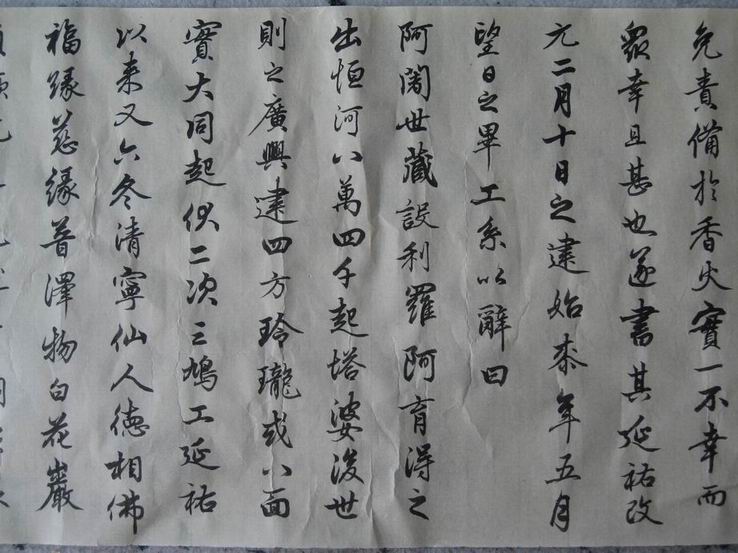 免責備於香火實一不幸而
眾幸且甚也遂書其延祐改
元二月十日之建始泰年五月
望日之畢工系以辭曰
阿闍世藏設利羅阿育得之
出恒河八萬四千起塔婆後世
則之廣興建四方玲瓏或八面
實大同起似二次三鳩工延祐
以來又六冬清寧仙人德相佛
福緣慈緣普澤物白花巖